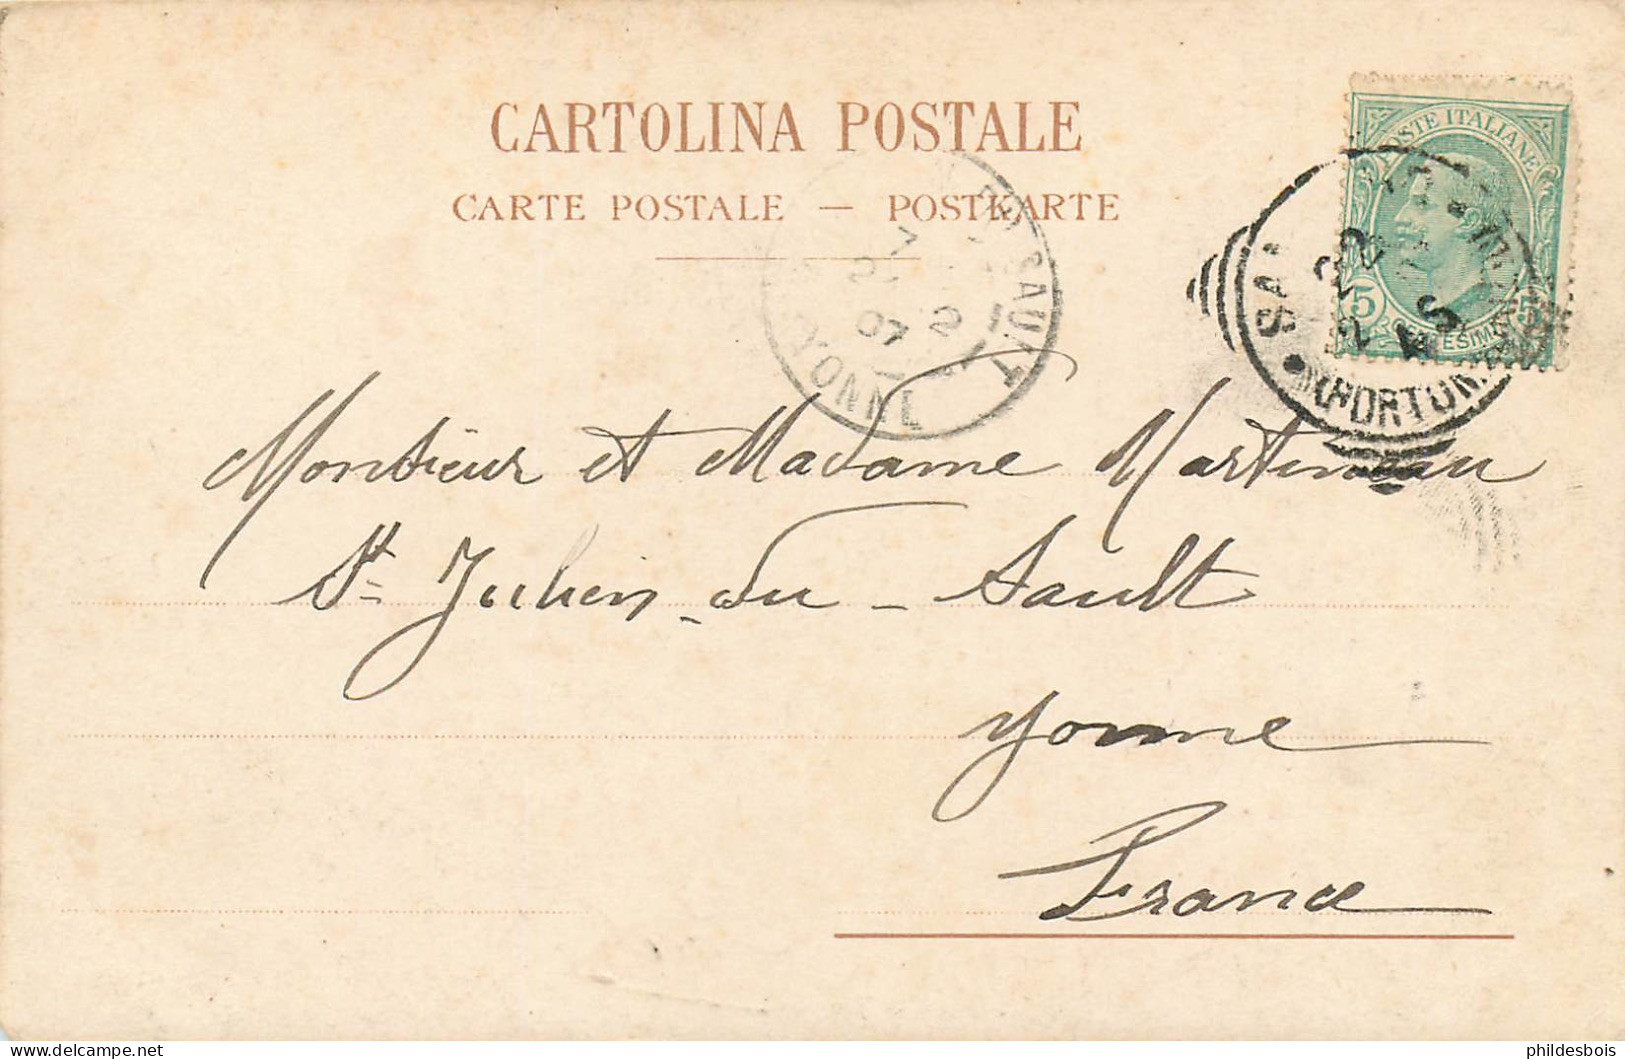 CARTOLINA POSTALE
CARTE POSTALE — POSTKARTE
POSTE ITALIANE
5 5
CENTESIMI
DU SAULT
2
07
YONNE
22
Monsieur et Madame Martineau
St Julien - du - Sault
Yonne
France
phildesbois